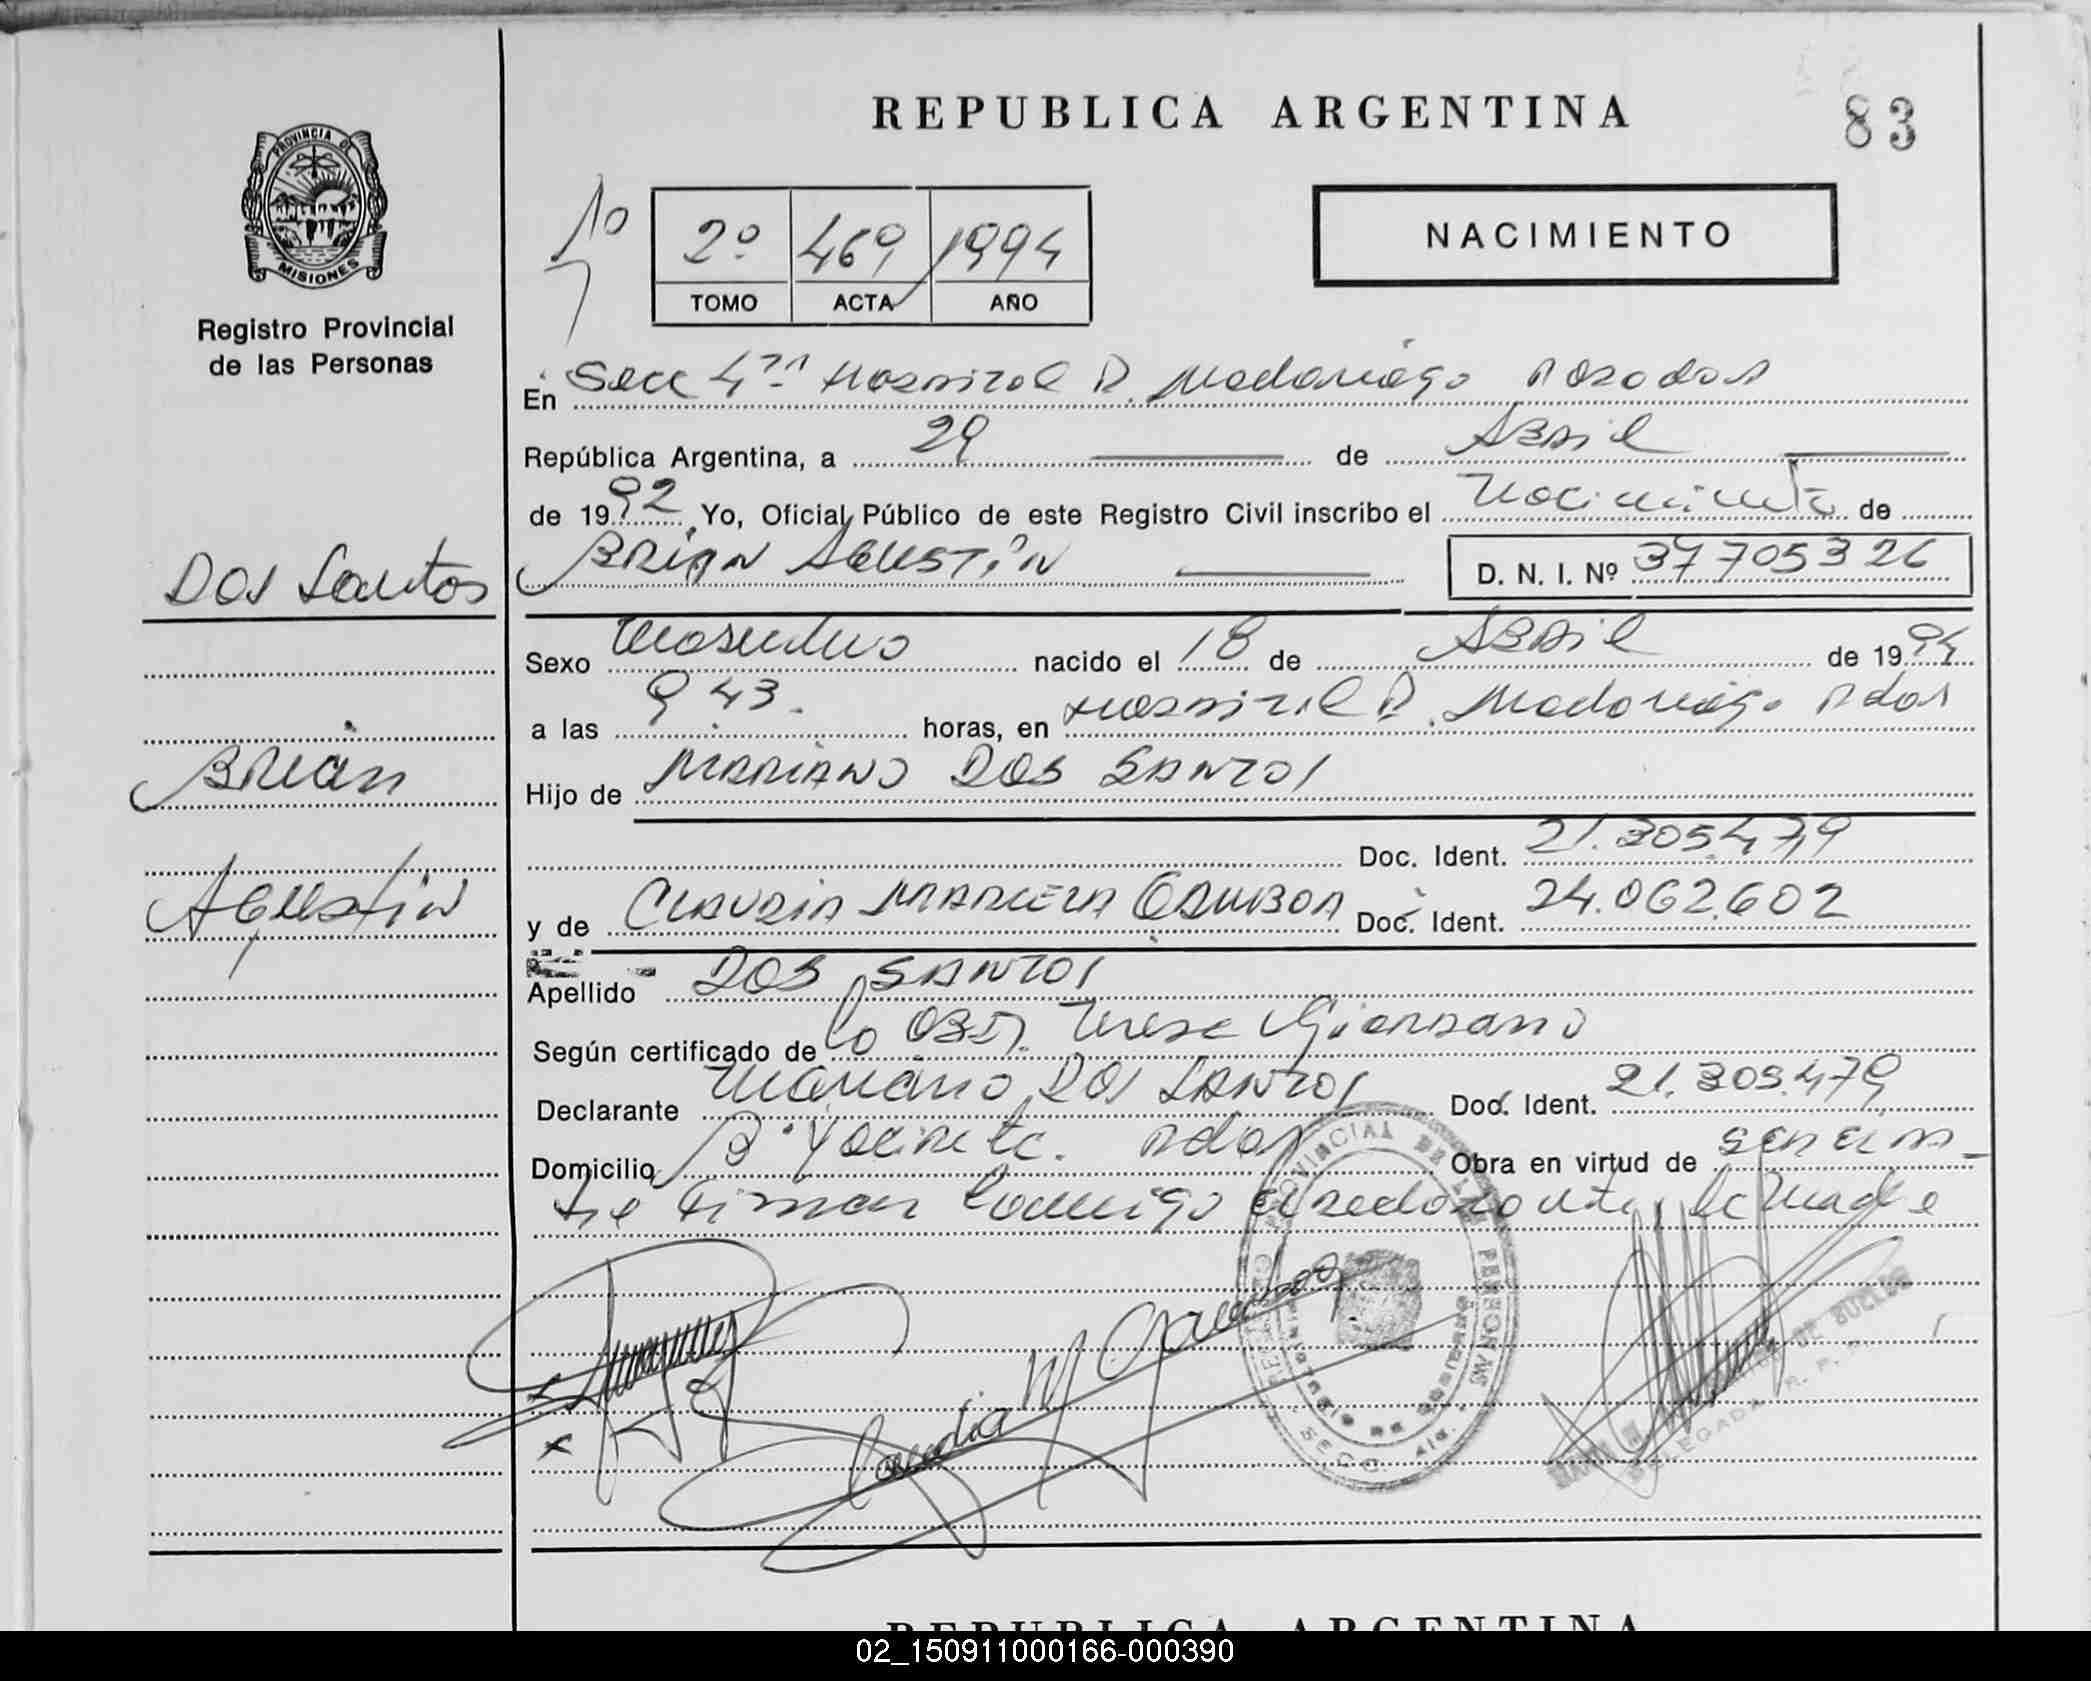 REPUBLICA ARGENTINA
83
PROVINCIA DE
MISIONES
Registro Provincial
de las Personas
2º 469 1994
TOMO ACTA AÑO
NACIMIENTO
En Secc 4ta Hospital R. Madariaga Posadas
República Argentina, a 29 de Abril
de 1992 Yo, Oficial Público de este Registro Civil inscribo el Nacimiento de
Brian Agustín D. N. I. Nº 37705326
Dos Santos
Brian
Agustin
Sexo Masculino nacido el 18 de Abril de 1994
a las 9 43. horas, en Hospital R. Madariaga Pdas
Hijo de Mariano Dos Santos
Doc. Ident. 21.305.479
y de Claudia Marcela Gamboa Doc. Ident. 24.062.602
Apellido Dos Santos
Según certificado de la Obst. Teresa Giordano
Declarante Mariano Dos Santos Doc. Ident. 21.305.479
Domicilio Bº Yacireta. Pdas Obra en virtud de
Firman Conmigo la Madre
Claudia M Gamboa
REPUBLICA ARGENTINA
02_150911000166-000390